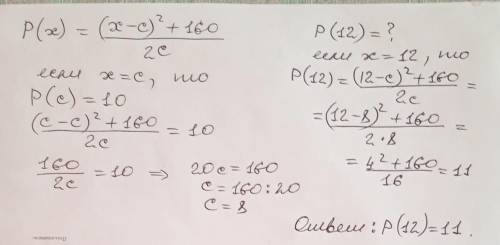 P(x) = ((x-c)² + 160) / 2c
если x=c, то
P(c) = 10
((c-c)² + 160) / 2c = 10
160 / 2c = 10 ⇒ 20c = 160
c = 160 : 20
c = 8
P(12) = ?
если x = 12, то
P(12) = ((12-c)² + 160) / 2c =
= ((12-8)² + 160) / 2·8 =
= (4² + 160) / 16 = 11
Ответ: P(12) = 11.